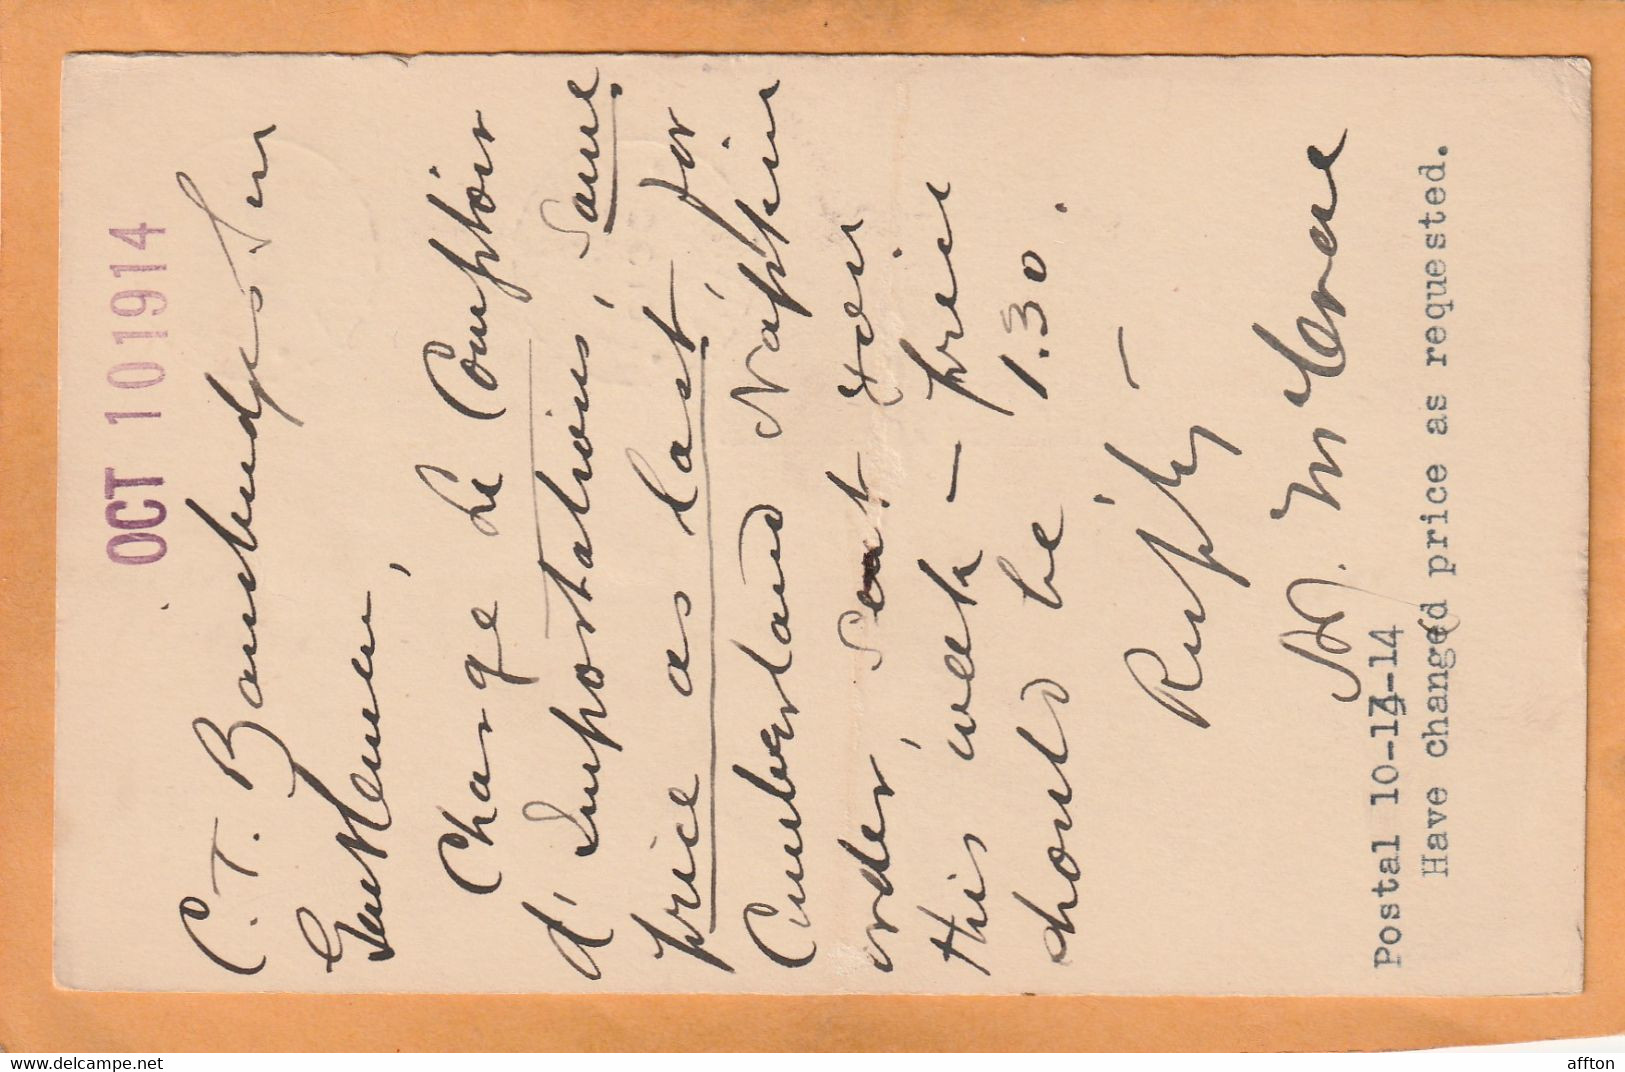 OCT 10 1914
C. T. Bainbridge's Son
Gentlemen,
Charge Le Comptoir
d'Importations, same
price as last for
Cumberland Napkin
order, sent
this week — price
should be 1.30.
Resp'ly —
Postal 10-13-14
Have changed price as requested.
delcampe.net
affton